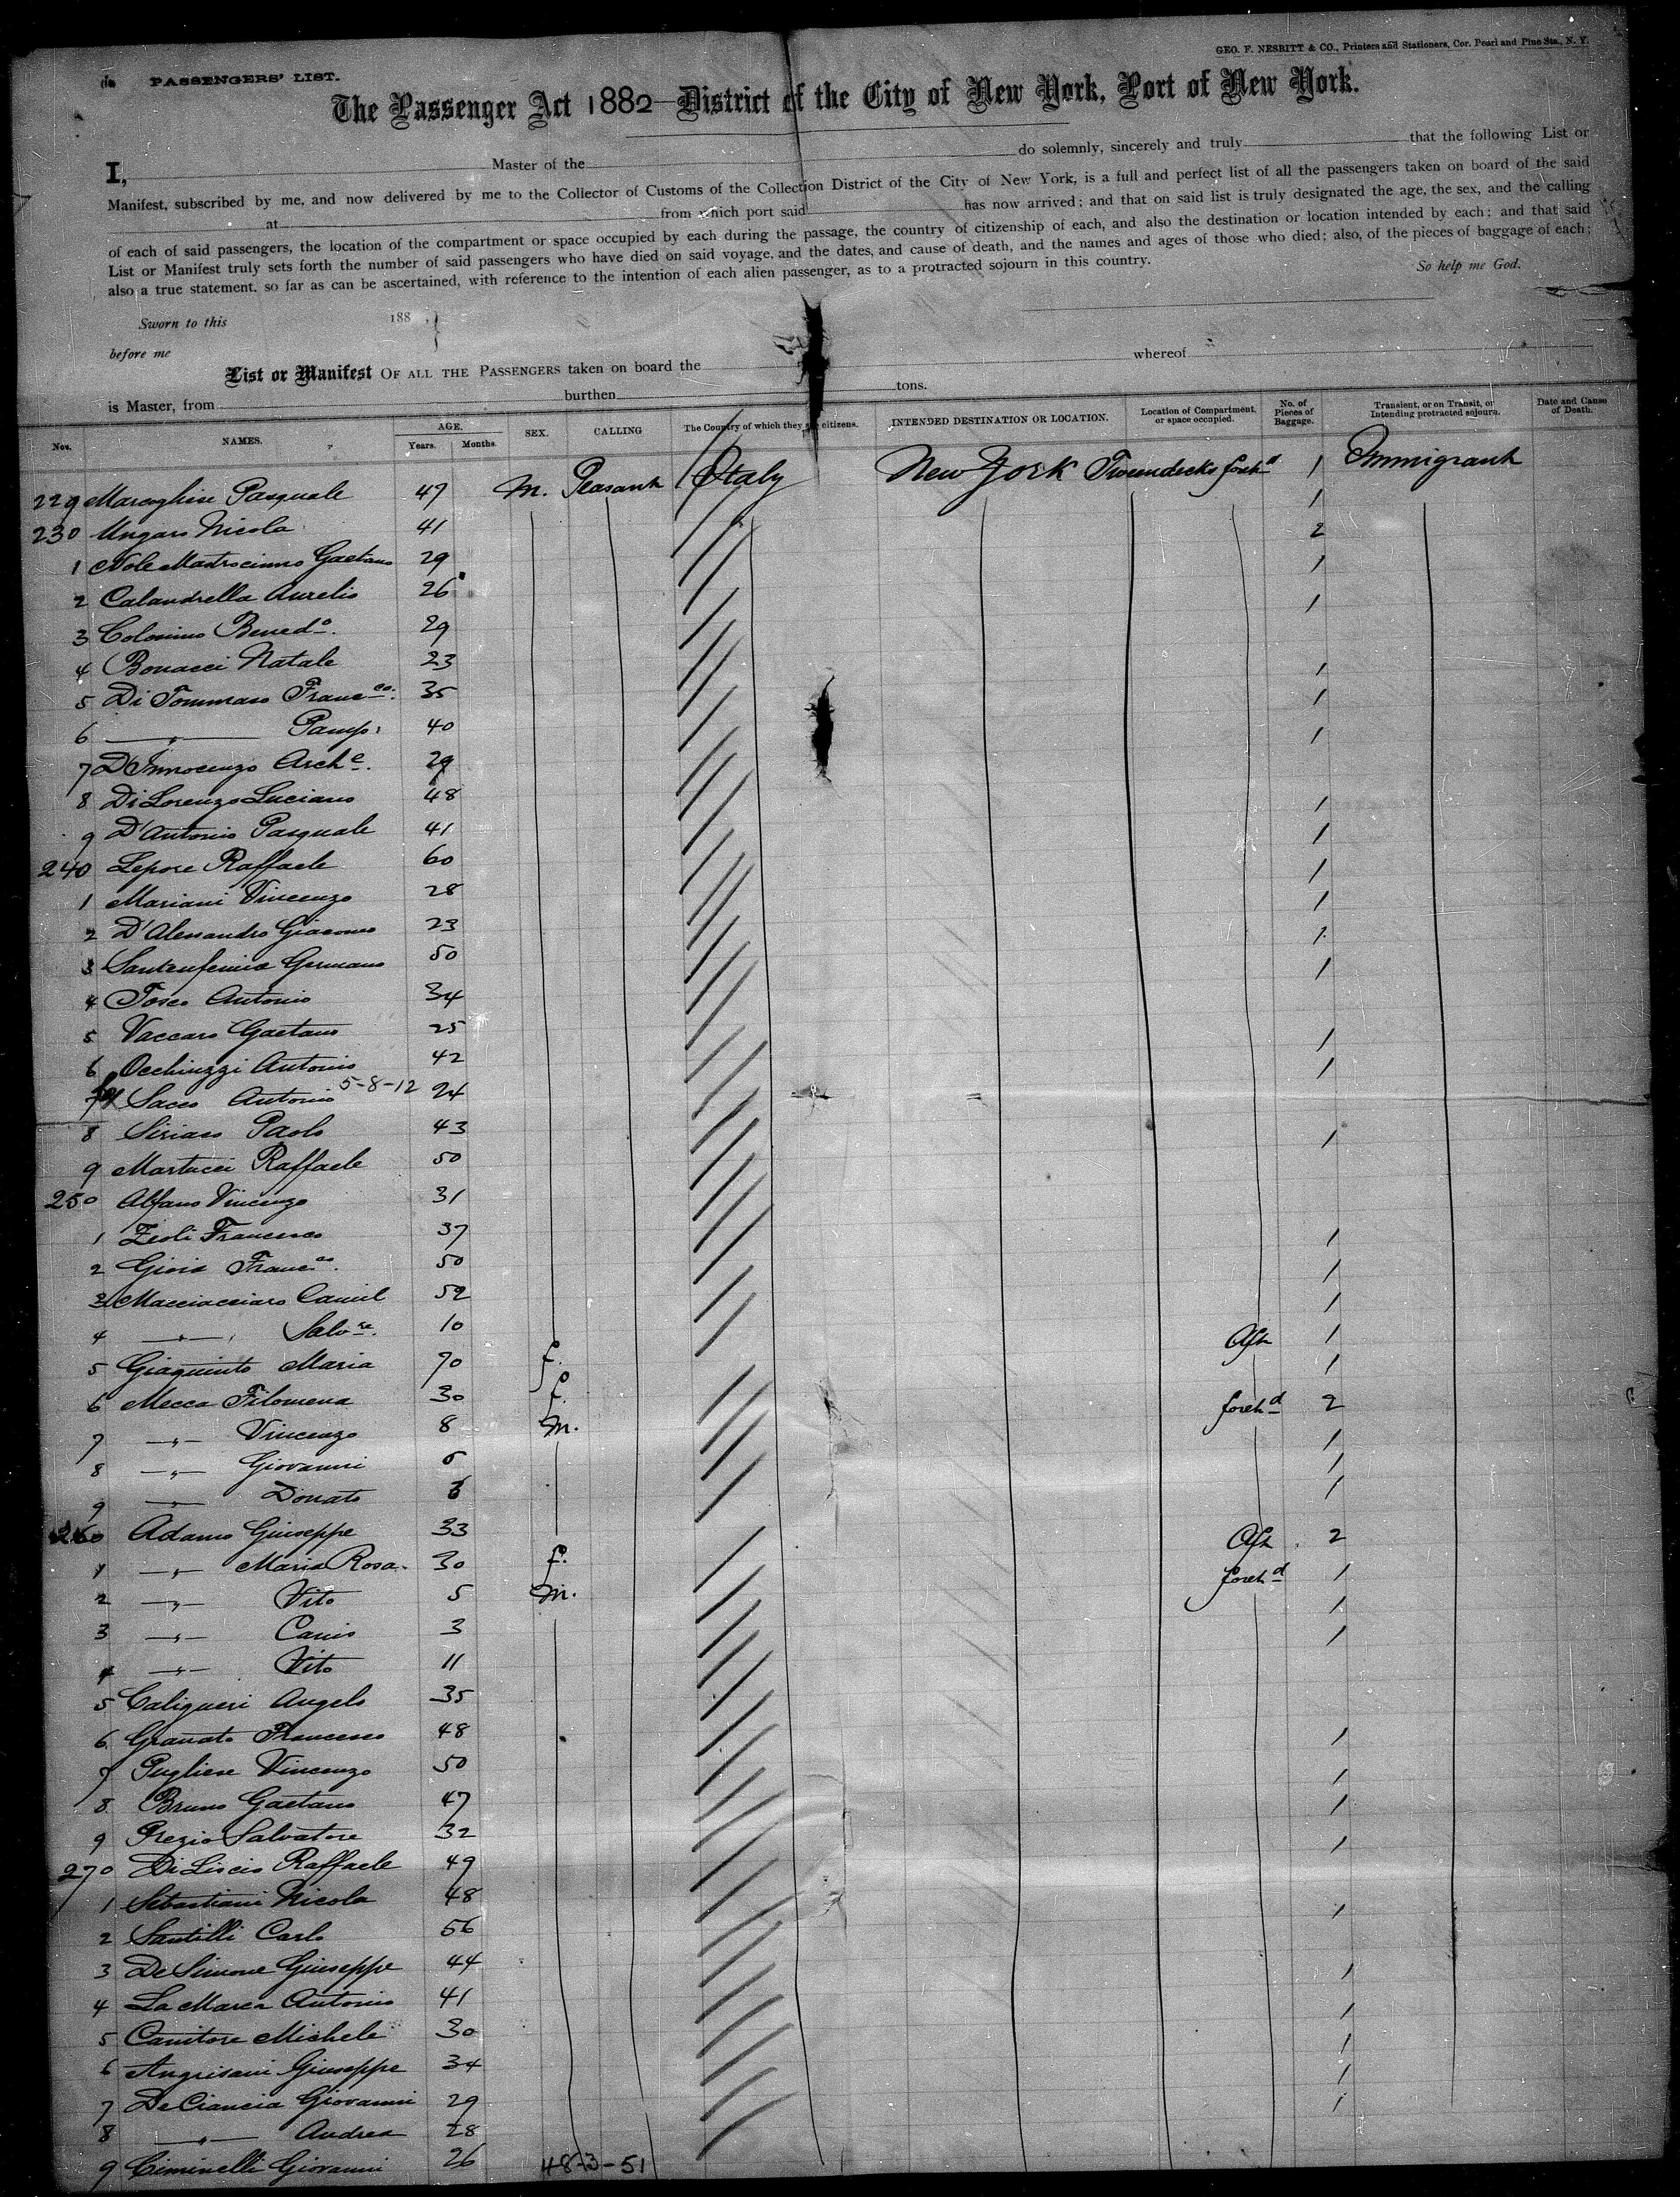 GEO. F. NESBITT & CO., Printers and Stationers, Cor. Pearl and Pine Sts., N. Y.
PASSENGERS' LIST.
The Passenger Act 1882 District of the City of New York, Port of New York.
I, Master of the do solemnly, sincerely and truly that the following List or
Manifest, subscribed by me, and now delivered by me to the Collector of Customs of the Collection District of the City of New York, is a full and perfect list of all the passengers taken on board of the said
at from which port said has now arrived; and that on said list is truly designated the age, the sex, and the calling
of each of said passengers, the location of the compartment or space occupied by each during the passage, the country of citizenship of each, and also the destination or location intended by each; and that said
List or Manifest truly sets forth the number of said passengers who have died on said voyage, and the dates, and cause of death, and the names and ages of those who died; also, of the pieces of baggage of each;
also a true statement, so far as can be ascertained, with reference to the intention of each alien passenger, as to a protracted sojourn in this country. So help me God.
Sworn to this 188
before me
List or Manifest OF ALL THE PASSENGERS taken on board the whereof
is Master, from burthen tons.
Nos. NAMES. AGE. Years. Months. SEX. CALLING The Country of which they citizens. INTENDED DESTINATION OR LOCATION. Location of Compartment, or space occupied. No. of Pieces of Baggage. Transient, or on Transit, or Intending protracted sojourn. Date and Cause of Death.
229 Pasquale 47 M. Peasant Italy New York Tweendecks foreh^d 1 Immigrant
230 Ungaro Nicola 41 1
1 Gaetano 29 2
2 Calandrella Aurelio 26 1
3 Colosimo Bened^o. 29 1
4 Bonacci Natale 23
5 Di Tommaso Franc^co. 35 1
6 —〃— Pamp. 40 1
7 D'Innocenzo Arch^e. 29 1
8 Di Lorenzo Luciano 48
9 D'Antonio Pasquale 41 1
240 Lepore Raffaele 60 1
1 Mariani Vincenzo 28 1
2 D'Alessandro Giacomo 23 1
3 Santeufemia Germano 50 1
4 Tosco Antonio 34 1
5 Vaccaro Gaetano 25
6 Occhiuzzi Antonio 42 1
7 Sacco Antonio 5-8-12 24 1
8 Siriaco Paolo 43
9 Martucci Raffaele 50 1
250 Alfano Vincenzo 31
1 Zeoli Francesco 37
2 Gioia Franc^co. 50 1
3 Macciacciaro Camil 52 1
4 —〃— Salv^re. 10 1
5 Giaquinto Maria 70 f. Aft 1
6 Mecca Filomena 30 f. 1
7 —〃— Vincenzo 8 m. foreh^d 2
8 —〃— Giovanni 6 1
9 —〃— Donato 1
260 Adamo Giuseppe 33 1
1 —〃— Maria Rosa 30 f. Aft 2
2 —〃— Vito 5 m. foreh^d 1
3 —〃— 3 1
4 —〃— Vito 11 1
5 Caligueri Angelo 35
6 Granato Francesco 48
7 Pugliese Vincenzo 50 1
8 Bruno Gaetano 47 1
9 Prezio Salvatore 32 1
270 Di Liscio Raffaele 49 1
1 Sebastiani Nicola 48
2 Santilli Carlo 56 1
3 De Simone Giuseppe 44
4 La Marca Antonio 41 1
5 Canitore Michele 30 1
6 Angrisani Giuseppe 34 1
7 De Ciancia Giovanni 29 1
8 —〃— Andrea 28 1
9 Ciminelli Giovanni 26
48-3-51